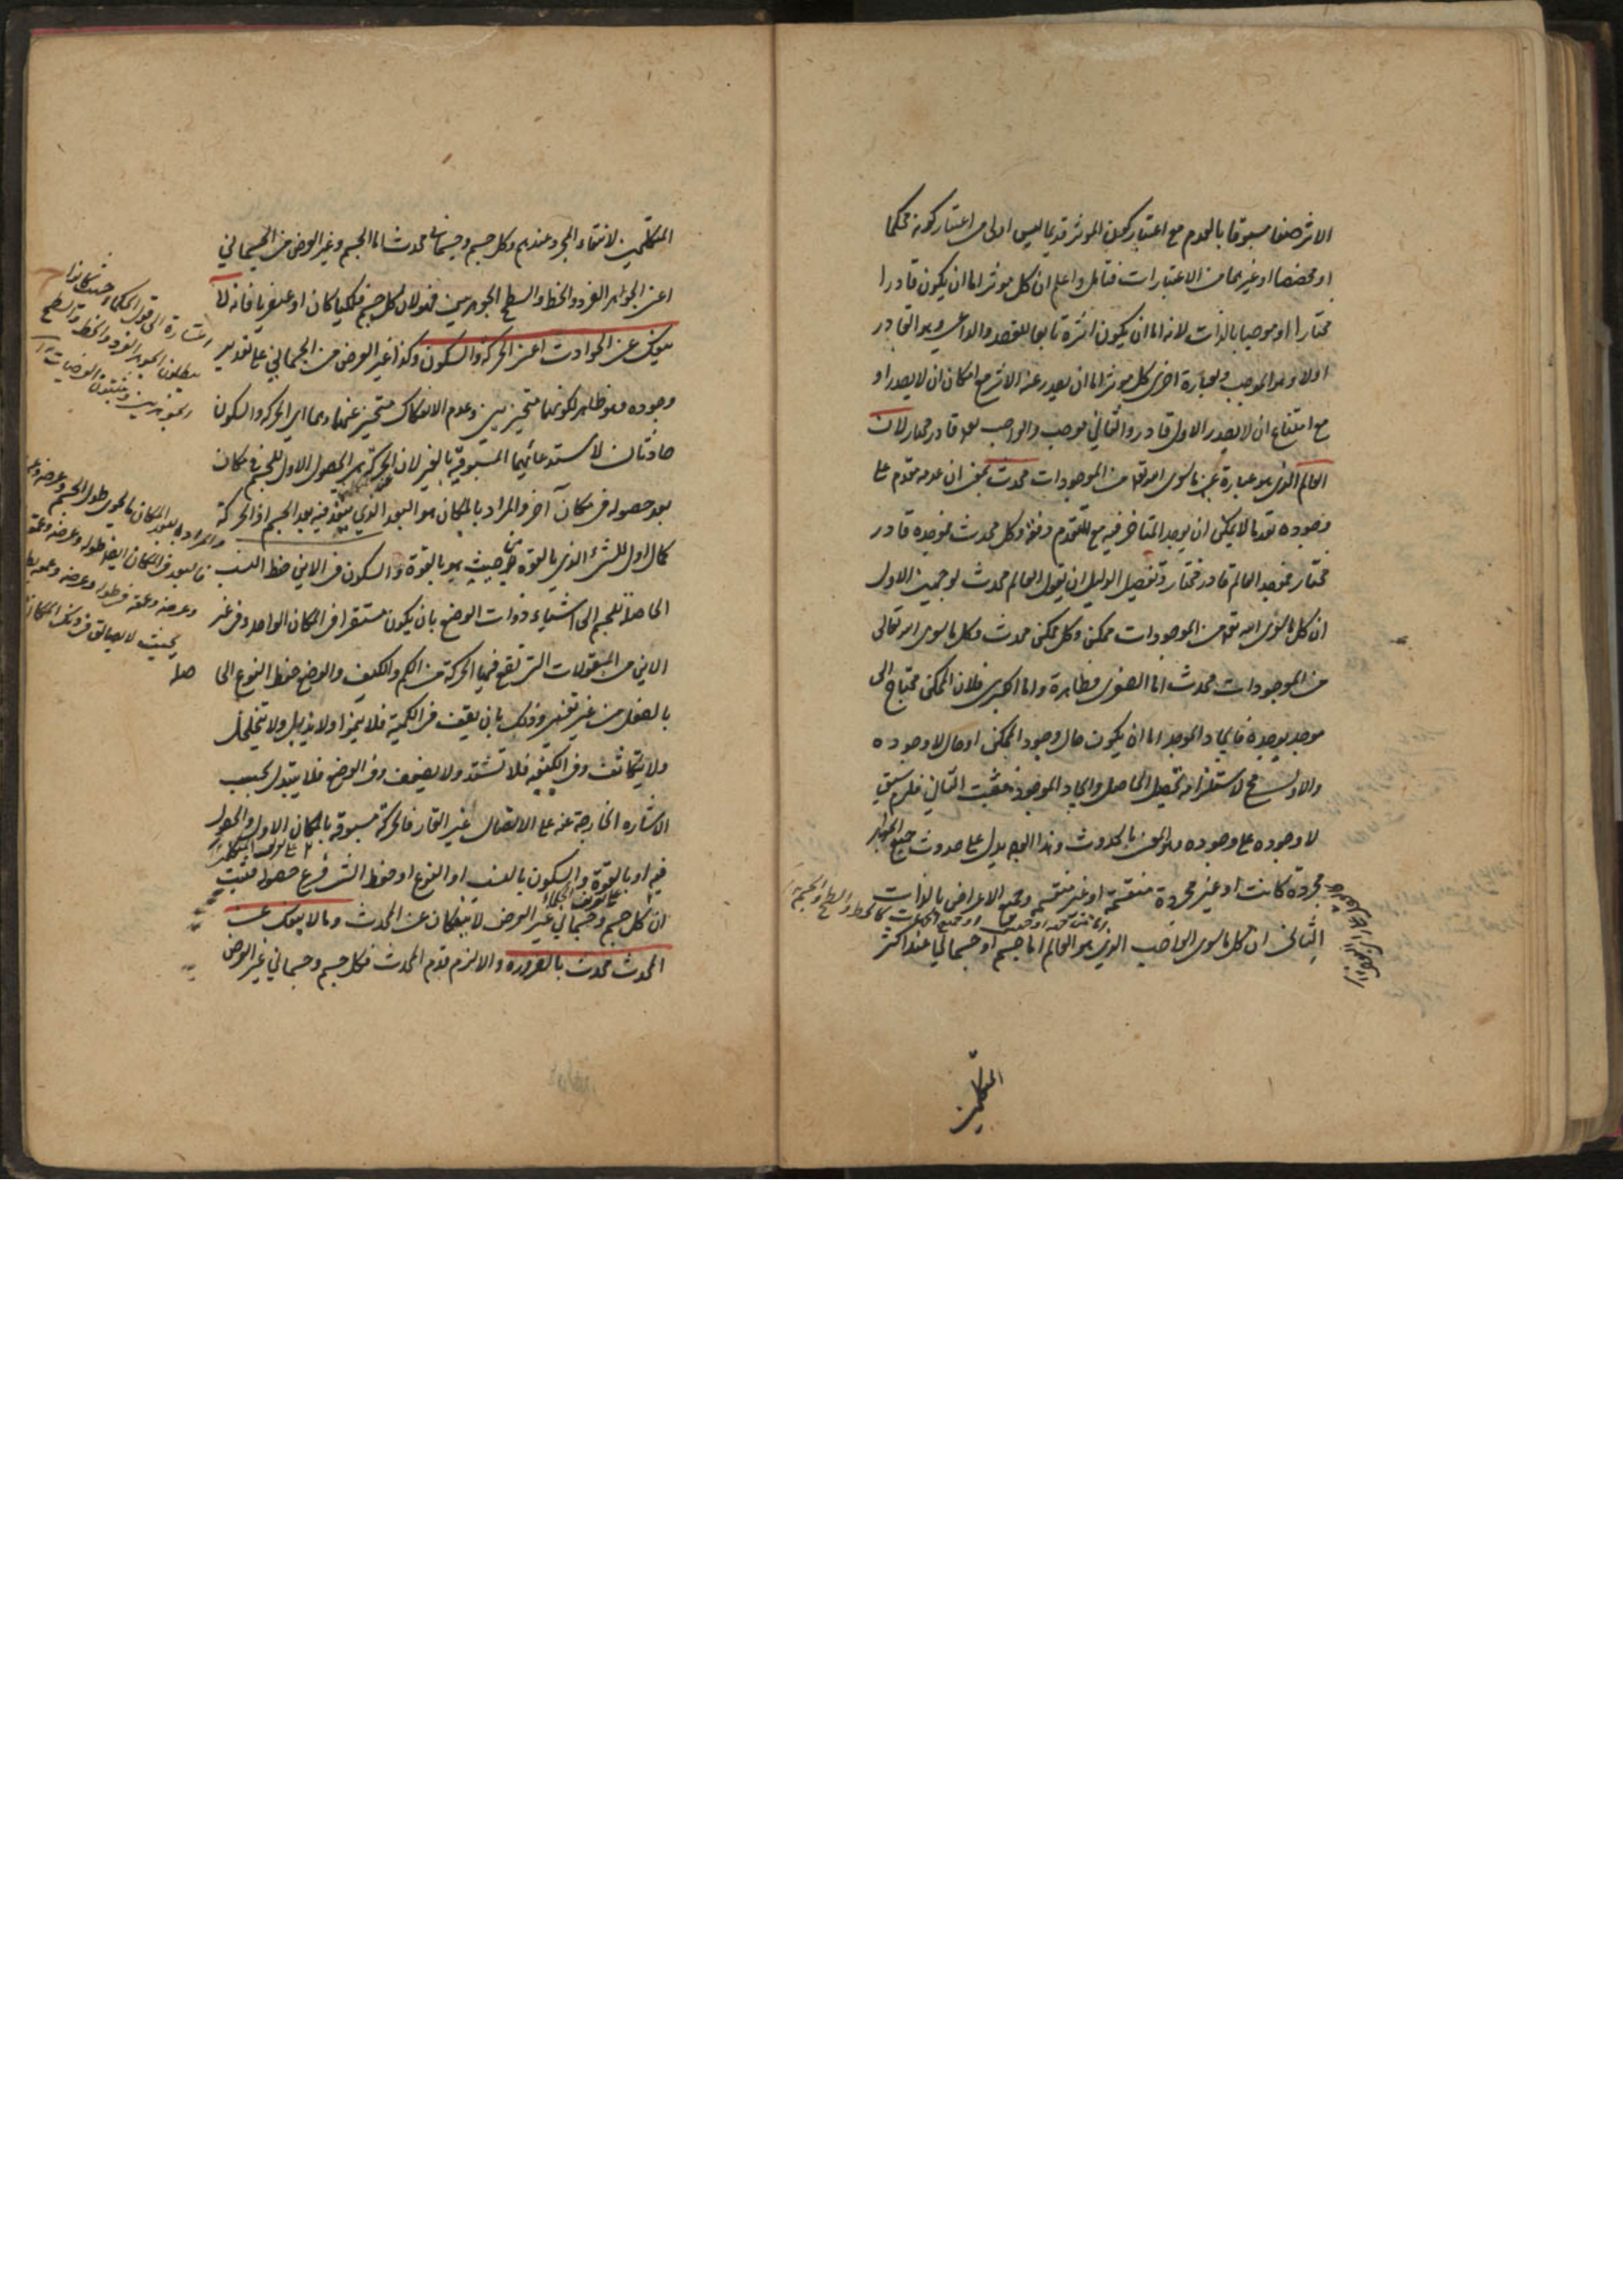 الاثر صفا مسبوقا بالعدم مع اعتبار كون الموثر قديما ليس اولى من اعتبار كونه محكما
او مخصصا او غيرهما من الاعتبارات فتامل واعلم ان كل موثر اما ان يكون قادرا
مختارا او موجبا بالذات لانه اما ان يكون اثره تابعا للقصد والداعي وهو القادر
اولا وهو الموجب وبعبارة اخرى كل موثر اما ان يصدر عنه الاثر مع امكان ان لا يصدر او
مع امتناع ان لا يصدر الاول قادر والثاني موجب والواجب تعه قادر مختار لان
العالم الذي هو عبارة عن ما سوى الله تعه من الموجودات محدث بمعنى ان عدمه مقدم على
وجوده تقدما لا يمكن ان يوجد المتاخر فيه مع المتقدم وكل محدث فموجده قادر
مختار فموجد العالم قادر مختار وتفصيل الدليل ان نقول العالم محدث لوجهين الاول
ان كل ما سوى الله تعه من الموجودات ممكن وكل ممكن محدث فكل ما سوى الله تعالى
من الموجودات محدث اما الصغرى فظاهرة واما الكبرى فلان الممكن محتاج الى
موجد يوجده فايجاد الموجد اما ان يكون حال وجود الممكن او حال لا وجوده
والاول مح لاستلزامه تحصيل الحاصل وايجاد الموجود فثبت الثاني فلزم سبق
لا وجوده على وجوده وهو المعنى بالحدوث وهذا الوجه يدل على حدوث جميع الجواهر
مجردة كانت او غير مجردة منقسمة او غير منقسمة وجميع الاعراض بالذات
الثاني ان كل ما سوى الواجب الذي هو العالم اما جسم او جسماني عند اكثر
المتكلمين
المتكلمين لانتفاء المجرد عندهم وكل جسم وجسماني محدث اما الجسم وغير العرض من الجسماني
اعني الجواهر الفرد والخط والسطح الجوهريين فلان كل جسم فلكيا كان او عنصريا فانه لا
ينفك عن الحوادث اعني الحركة والسكون وكذا غير العرض من الجسماني على تقدير
وجوده وهو ظاهر لكونهما متحيزين وعدم الانفكاك متحيز عنهما وهما اي الحركة والسكون
حادثان لاستدعائهما المسبوقية بالغير لان الحركة هي الحصول الاول للجسم في مكان
بعد حصوله في مكان آخر والمراد بالمكان هو البعد الذي ينفذ فيه بعد الجسم اذ الحركة
كمال اول للشيء الذي بالقوة من حيث هو بالقوة والسكون في الاين حفظ النسب
الحاصلة للجسم الى اشياء ذوات الوضع بان يكون مستقرا في المكان الواحد وفي غير
الاين من المقولات التي تقع فيها الحركة من الكم والكيف والوضع حفظ النوع الى
بالفعل من غير تغير وذلك بان يقف في الكمية فلا ينمو اولا يذبل ولا يتخلخل
ولا يتكاثف وفي الكيفية فلا تشتد ولا يضعف وفي الوضع فلا يتبدل بحسب
الاشاره الخارجة عنه على الاتصال غير القار فالحركة مسبوقة بالمكان الاول والحصول
فيه او بالقوة والسكون بالنسب او النوع او حفظ الشيء فرع حصوله فثبت
ان كل جسم وجسماني غير العرض لا ينفكان عن المحدث وما لا ينفك عن
المحدث محدث بالضرورة والا لزم قدم المحدث فكل جسم وجسماني غير العرض
اشارة الى قول الحكماء حيث كانوا
يبطلون الجوهر الفرد والخط والسطح
الجوهريين ويثبتون العرضيات
والمراد بالبعد المكان ما يحوي طول الجسم وعرضه
فالبعد في المكان ايضا طوله وعرضه وعمقه